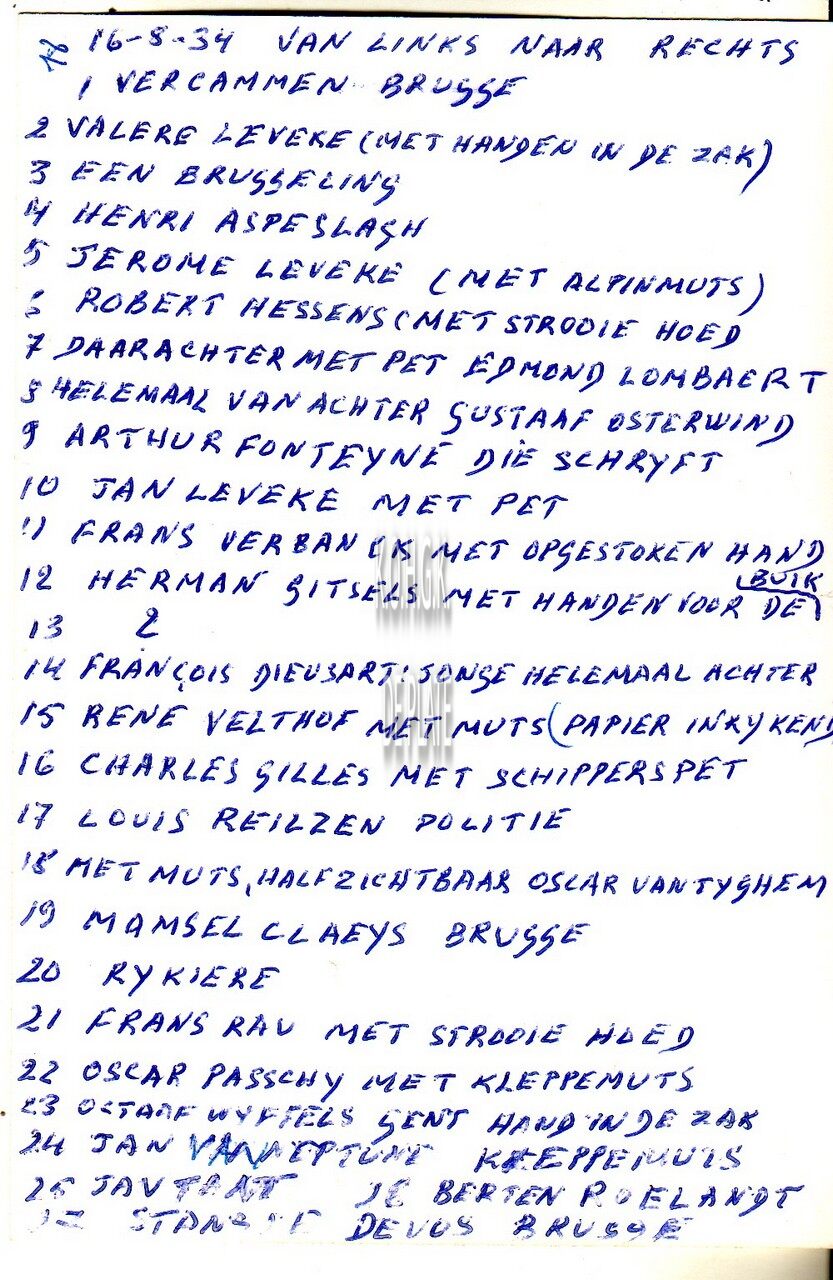 16-8-34 VAN LINKS NAAR RECHTS
1 VERCAMMEN BRUGGE
2 VALERE LEVEKE (MET HANDEN IN DE ZAK)
3 EEN BRUGGELING
4 HENRI ASPESLAGH
5 JEROME LEVEKE (MET ALPINMUTS)
6 ROBERT HESSENS (MET STROOIE HOED
7 DAARACHTER MET PET EDMOND LOMBAERT
8 HELEMAAL VAN ACHTER GUSTAAF OSTERWIND
9 ARTHUR FONTEYNE DIE SCHRYFT
10 JAN LEVEKE MET PET
11 FRANS VERBANCK MET OPGESTOKEN HAND
12 HERMAN GITSELS MET HANDEN VOOR DE BUIK
13 2
14 FRANÇOIS DIEUSART: JONGE HELEMAAL ACHTER
15 RENE VELTHOF MET MUTS (PAPIER INKYKEND
16 CHARLES GILLES MET SCHIPPERSPET
17 LOUIS REILZEN POLITIE
18 MET MUTS, HALFZICHTBAAR OSCAR VANTYGHEM
19 MAMSEL CLAEYS BRUGGE
20 RYKIERE
21 FRANS RAU MET STROOIE HOED
22 OSCAR PASSCHY MET KLEPPEMUTS
23 OCTAAF WYFFELS GENT HAND IN DE ZAK
24 JAN VAN NEPTUNE KLEPPEMUTS
25 26 BERTEN ROELANDT
DEVOS BRUGGE
KOHGK
DEPLATE